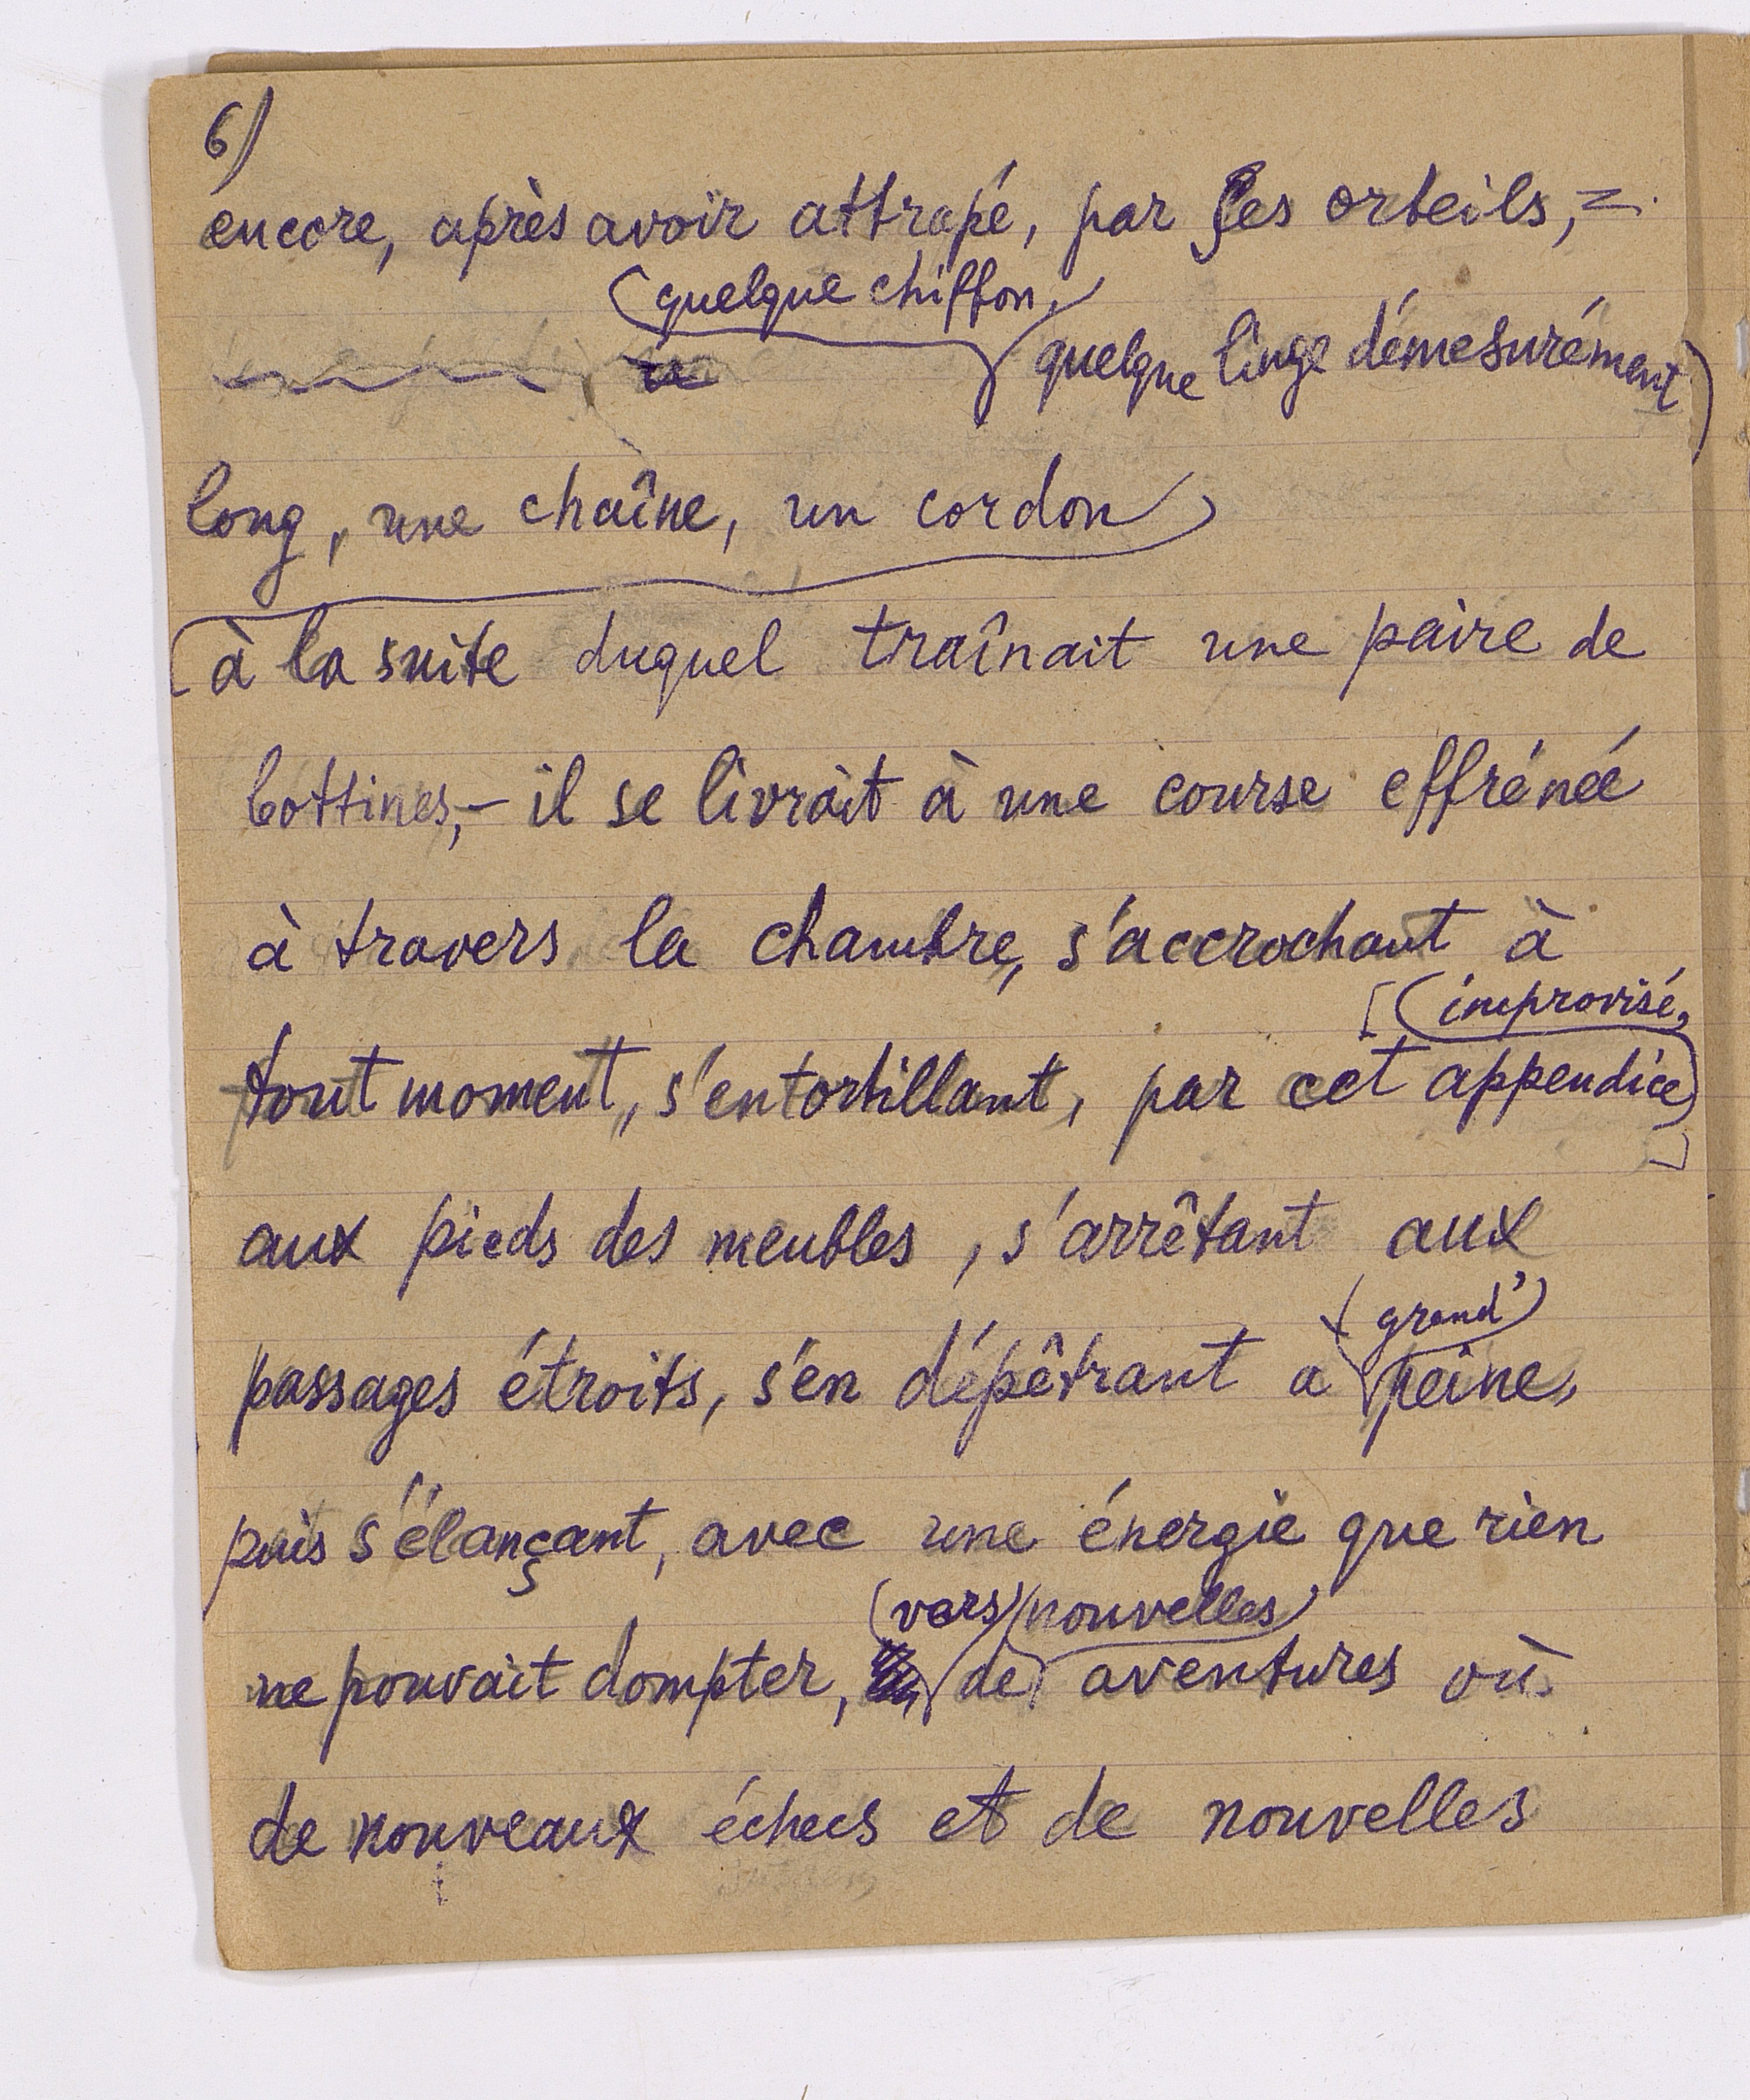 6)
encore, après avoir attrapé, par les orteils, =
quelque chiffon,
quelque linge démesurément
long, une chaîne, un cordon
à la suite duquel traînait une paire de
bottines, – il se livrait à une course effrénée
à travers la chambre, s'accrochant à
improvisé,
tout moment, s'entortillant, par cet appendice
aux pieds des meubles, s'arrêtant aux
grand'
passages étroits, s'en dépêtrant a peine,
puis s'élançant, avec une énergie que rien
vers nouvelles
ne pouvait dompter, de aventures où
de nouveaux échecs et de nouvelles